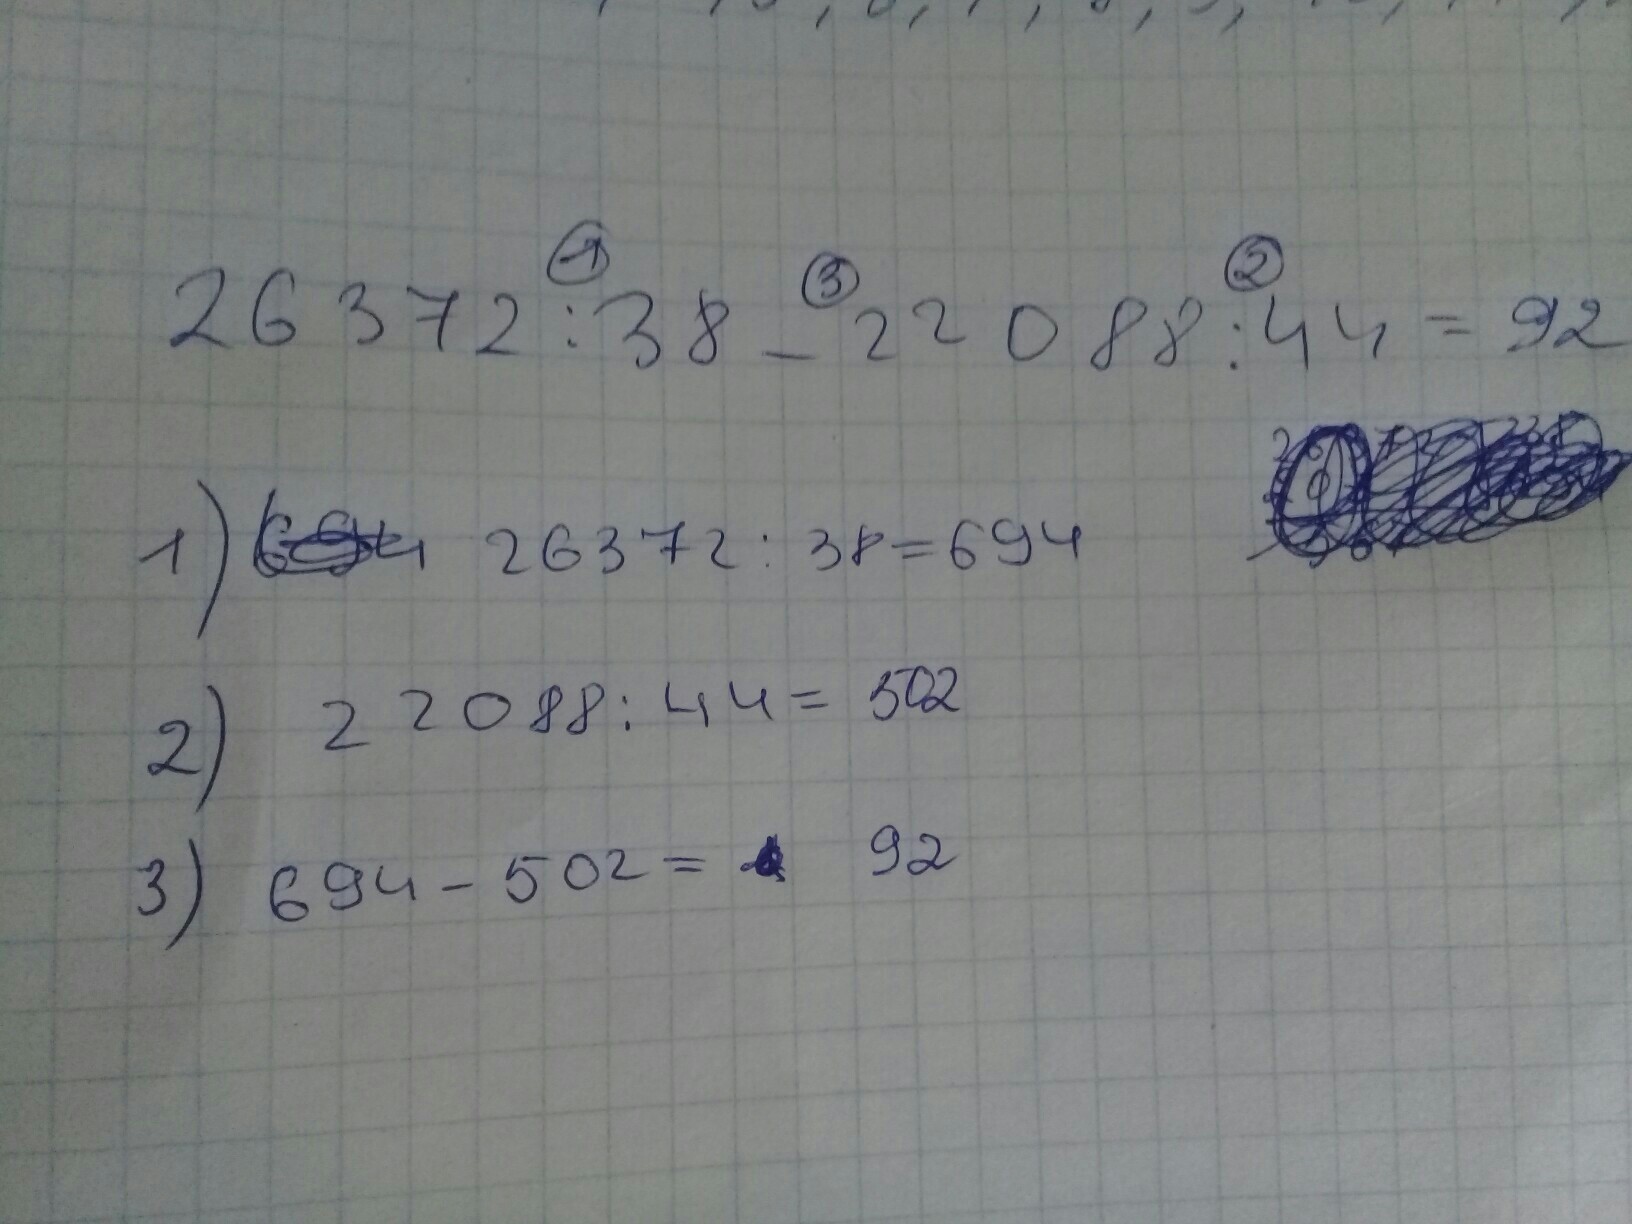 26372:38-22088:44=92
1) 26372:38=694
2) 22088:44=502
3) 694-502= 92